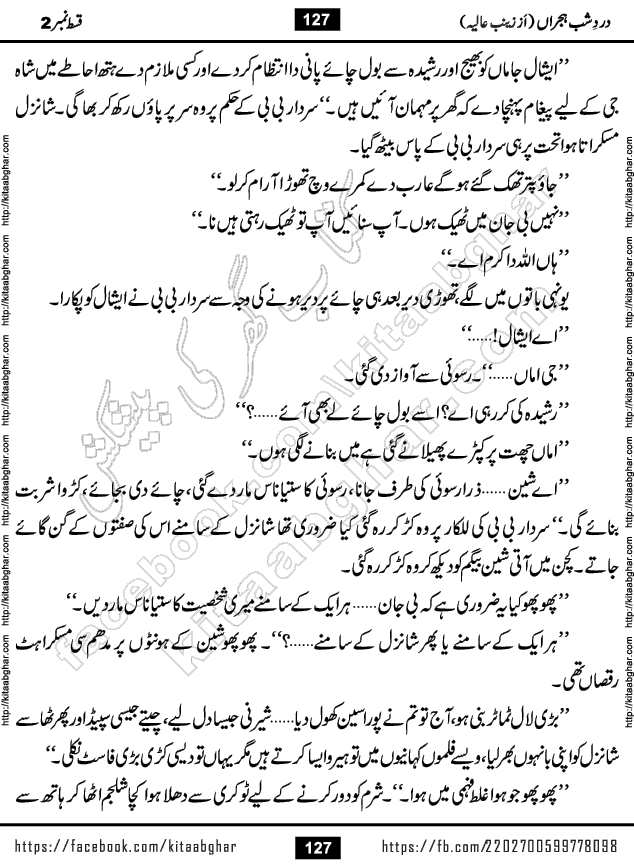 قسط نمبر 2 127 دردِ شب ہجراں (از زینب عالیہ)
’’ایشال جا ماں کو بھیج اور رشیدہ سے بول چائے پانی دا انتظام کر دے اور کسی ملازم دے ہتھ احاطے میں شاہ
جی کے لیے پیغام پہنچا دے کہ گھر پر مہمان آئیں ہیں۔‘‘ سردار بی بی کے حکم پر وہ سر پر پاؤں رکھ کر بھاگی۔ شانزل
مسکراتا ہوا تخت پر ہی سردار بی بی کے پاس بیٹھ گیا۔
’’جاؤ پتر تھک گئے ہو گے عارب دے کمرے وچ تھوڑا آرام کر لو۔‘‘
’’نہیں بی جان میں ٹھیک ہوں۔ آپ سنائیں آپ تو ٹھیک رہتی ہیں نا۔‘‘
’’ہاں اللہ دا کرم اے۔‘‘
یونہی باتوں میں لگے، تھوڑی دیر بعد ہی چائے پر دیر ہونے کی وجہ سے سردار بی بی نے ایشال کو پکارا۔
’’اے ایشال!......‘‘
’’جی اماں......‘‘۔ رسوئی سے آواز دی گئی۔
’’رشیدہ کی کر رہی اے؟ اسے بول چائے لے بھی آئے......؟‘‘
’’اماں چھت پر کپڑے پھیلانے گئی ہے میں بنانے لگی ہوں۔‘‘
’’اے شین ...... ذرا رسوئی کی طرف جانا، رسوئی کا ستیا ناس مار دے گئی، چائے دی بجائے، کڑوا شربت
بنائے گی۔‘‘ سردار بی بی کی للکار پر وہ کڑ کر رہ گئی کیا ضروری تھا شانزل کے سامنے اس کی صفتوں کے گن گائے
جاتے۔ کچن میں آتی شین بیگم کو دیکھ کر وہ کڑ کر رہ گئی۔
’’پھوپھو کیا یہ ضروری ہے کہ بی جان...... ہر ایک کے سامنے میری شخصیت کا ستیا ناس مار دیں۔‘‘
’’ہر ایک کے سامنے یا پھر شانزل کے سامنے......؟‘‘۔ پھوپھو شین کے ہونٹوں پر مدھم سی مسکراہٹ
رقصاں تھی۔
’’بڑی لال ٹماٹر بنی ہو، آج تو تم نے پورا سین کھول دیا...... شیرنی جیسا دل لیے، چیتے جیسی سپیڈ اور پھر ٹھا سے
شانزل کو اپنی بانہوں بھر لیا، ویسے فلموں کہانیوں میں تو ہیرو ایسا کرتے ہیں مگر یہاں تو دیسی کڑی بڑی فاسٹ نکلی۔‘‘
’’پھوپھو جو ہوا غلط فہمی میں ہوا۔‘‘۔ شرم کو دور کرنے کے لیے ٹوکری سے دھلا ہوا کچا شلجم اٹھا کر ہاتھ سے
http://kitaabghar.com http://kitaabghar.com http://kitaabghar.com http://kitaabghar.com http://kitaabghar.com http://kitaabghar.com
http://kitaabghar.com http://kitaabghar.com http://kitaabghar.com http://kitaabghar.com http://kitaabghar.com http://kitaabghar.com
کتاب گھر کی پیشکش
kitaabghar.com
facebook.com\kitaabghar
https://facebook.com/kitaabghar 127 https://fb.com/2202700599778098